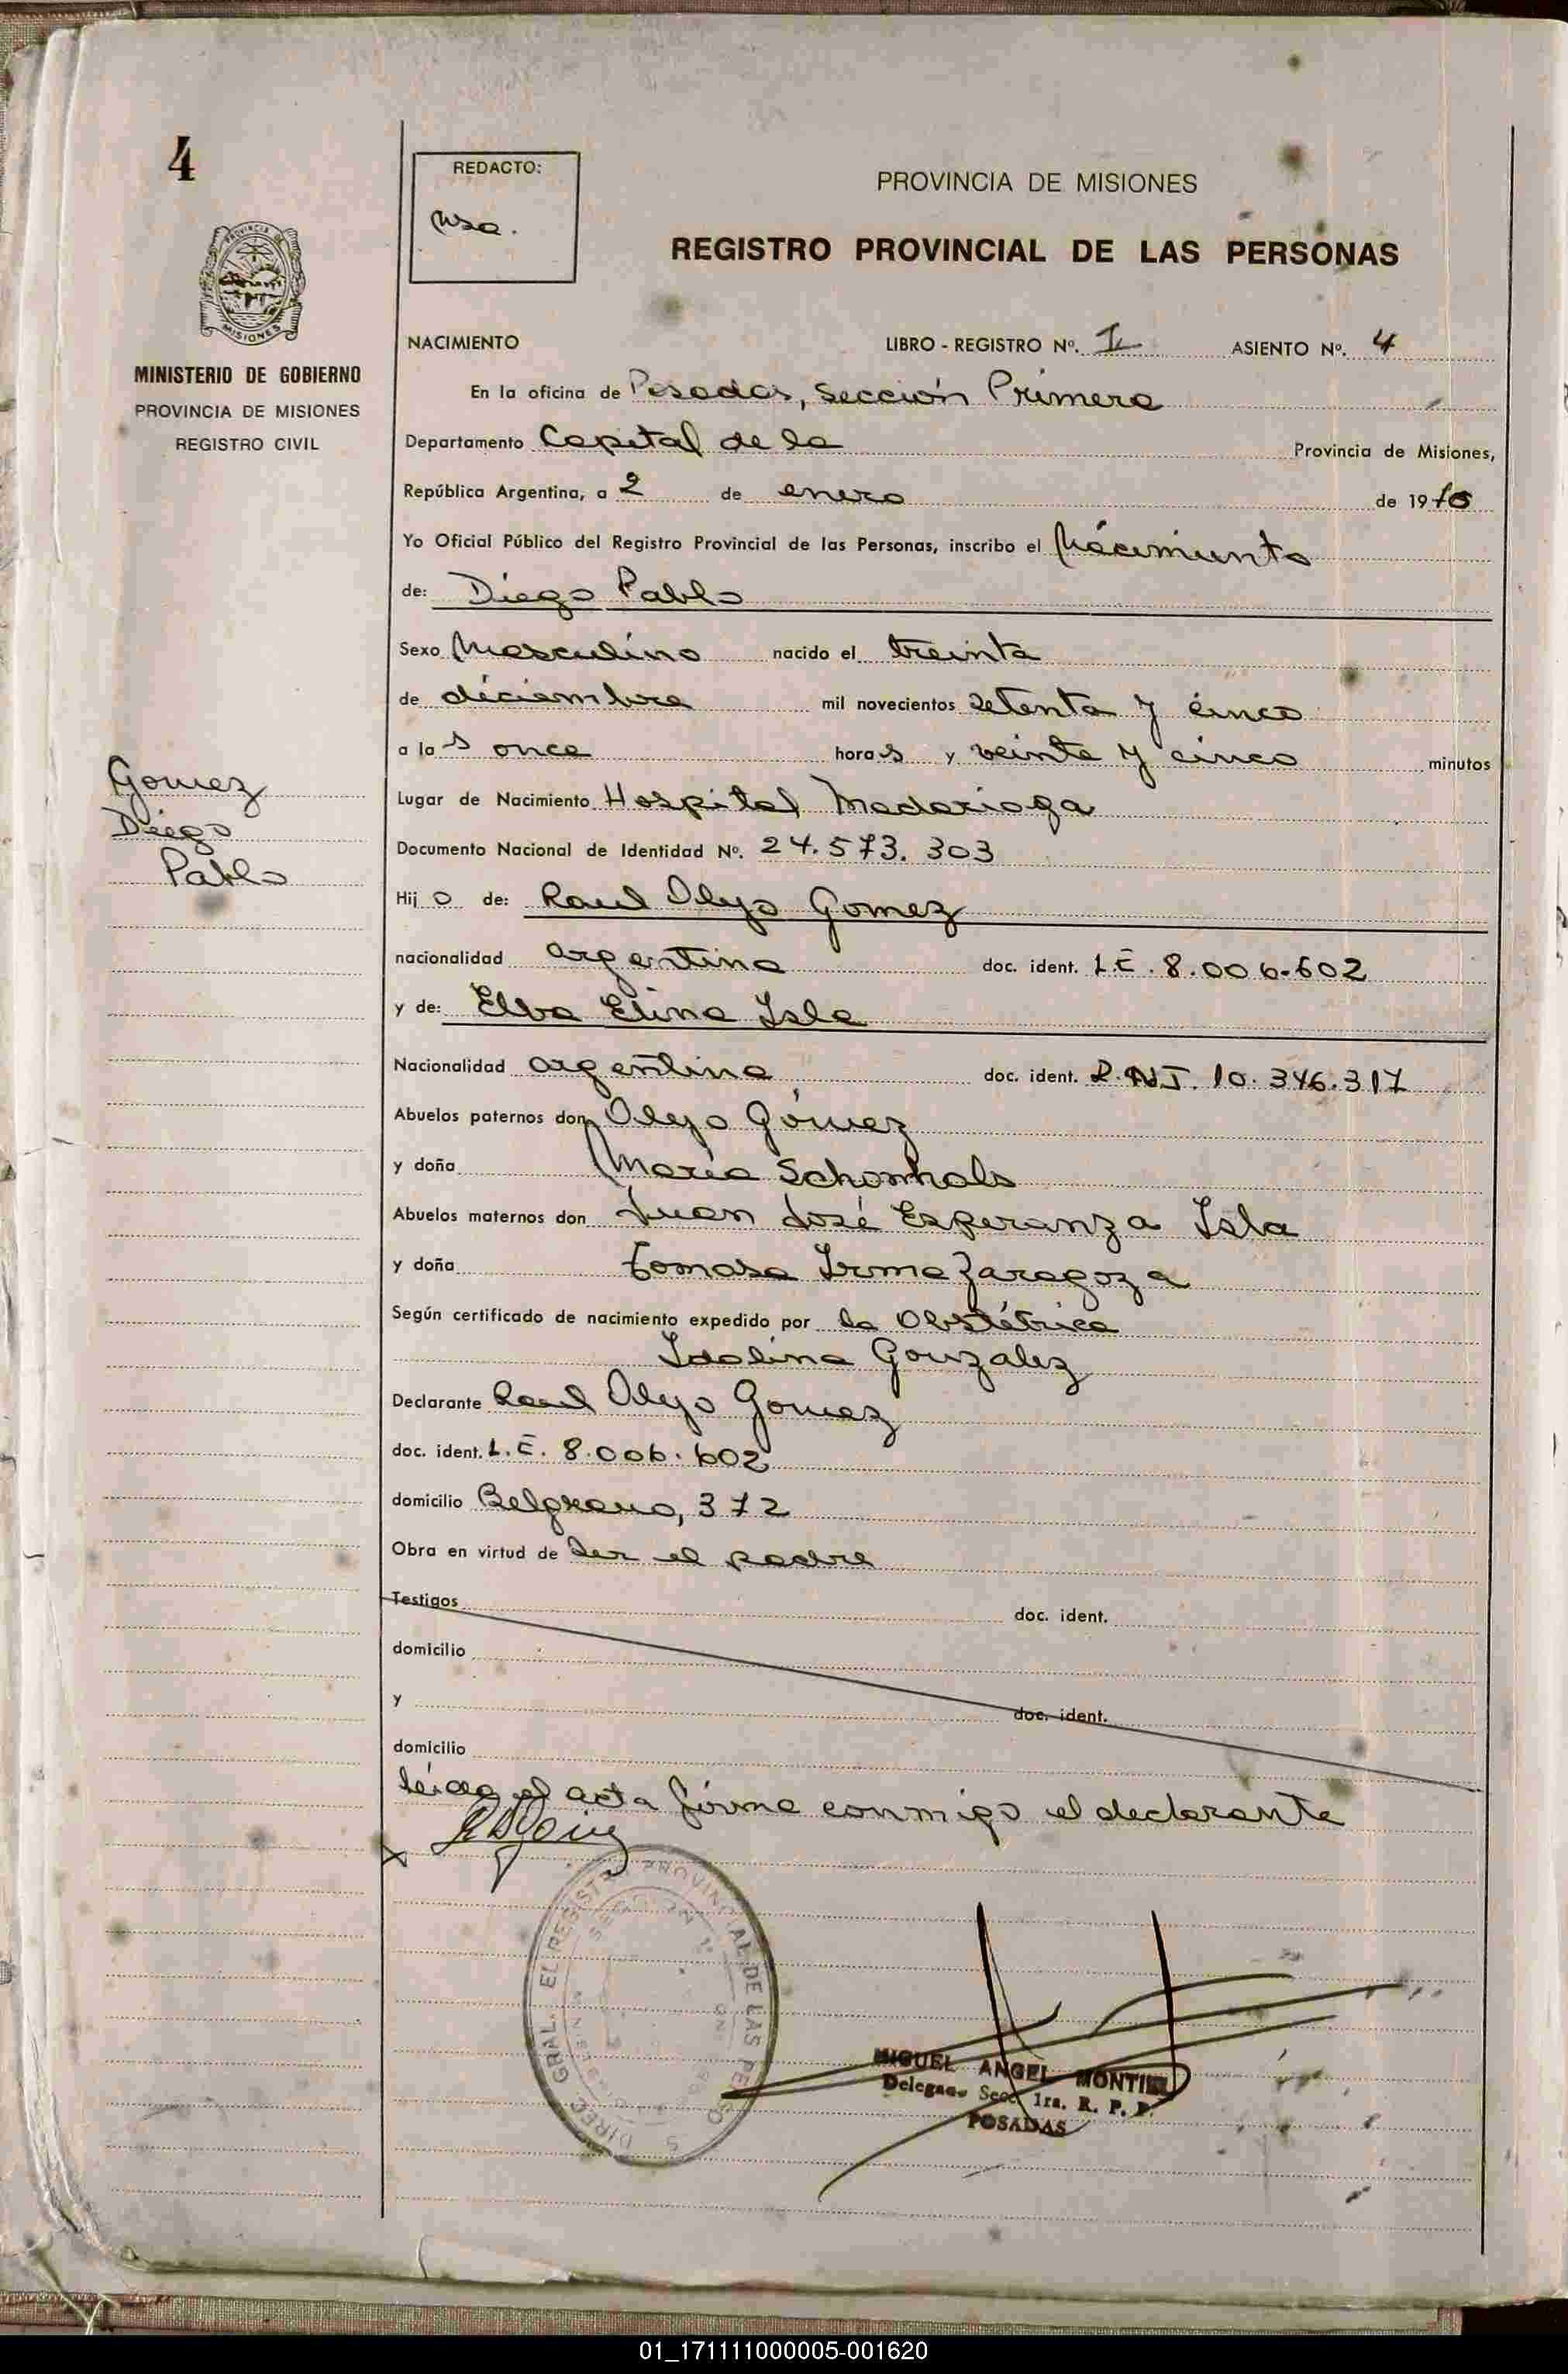 4
REDACTO:
PROVINCIA DE MISIONES
REGISTRO PROVINCIAL DE LAS PERSONAS
PROVINCIA DE
MISIONES
MINISTERIO DE GOBIERNO
PROVINCIA DE MISIONES
REGISTRO CIVIL
NACIMIENTO LIBRO - REGISTRO Nº. I ASIENTO Nº. 4
En la oficina de Posadas, Sección Primera
Departamento Capital de la Provincia de Misiones,
República Argentina, a 2 de enero de 19
Yo Oficial Público del Registro Provincial de las Personas, inscribo el Nacimiento
de: Diego Pablo
Sexo Masculino nacido el treinta
de diciembre mil novecientos setenta y cinco
a las once horas y veinte y cinco minutos
Gomez
Diego
Pablo
Lugar de Nacimiento Hospital Madariaga
Documento Nacional de Identidad Nº. 24.573.303
Hijo de: Raul Alejo Gomez
nacionalidad argentina doc. ident. L.E. 8.006.602
y de: Elba Elina Isla
Nacionalidad argentina doc. ident. D.N.I. 10.346.317
Abuelos paternos don Alejo Gómez
y doña María Schonhals
Abuelos maternos don Juan José Esperanza Isla
y doña Tomasa Irma Zaragoza
Según certificado de nacimiento expedido por la Obstétrica
Idolina Gonzalez
Declarante Raul Alejo Gomez
doc. ident. L.E. 8.006.602
domicilio Belgrano, 372
Obra en virtud de ser el padre
Testigos doc. ident.
domicilio
y doc. ident.
domicilio
leida el acta firma conmigo el declarante
DIREC. GRAL. EL REGISTRO PROVINCIAL DE LAS PERSO S
SECCION 1ª
MIGUEL ANGEL MONTIEL
Delegado Secc. 1ra. R. P. P.
POSADAS
01_171111000005-001620